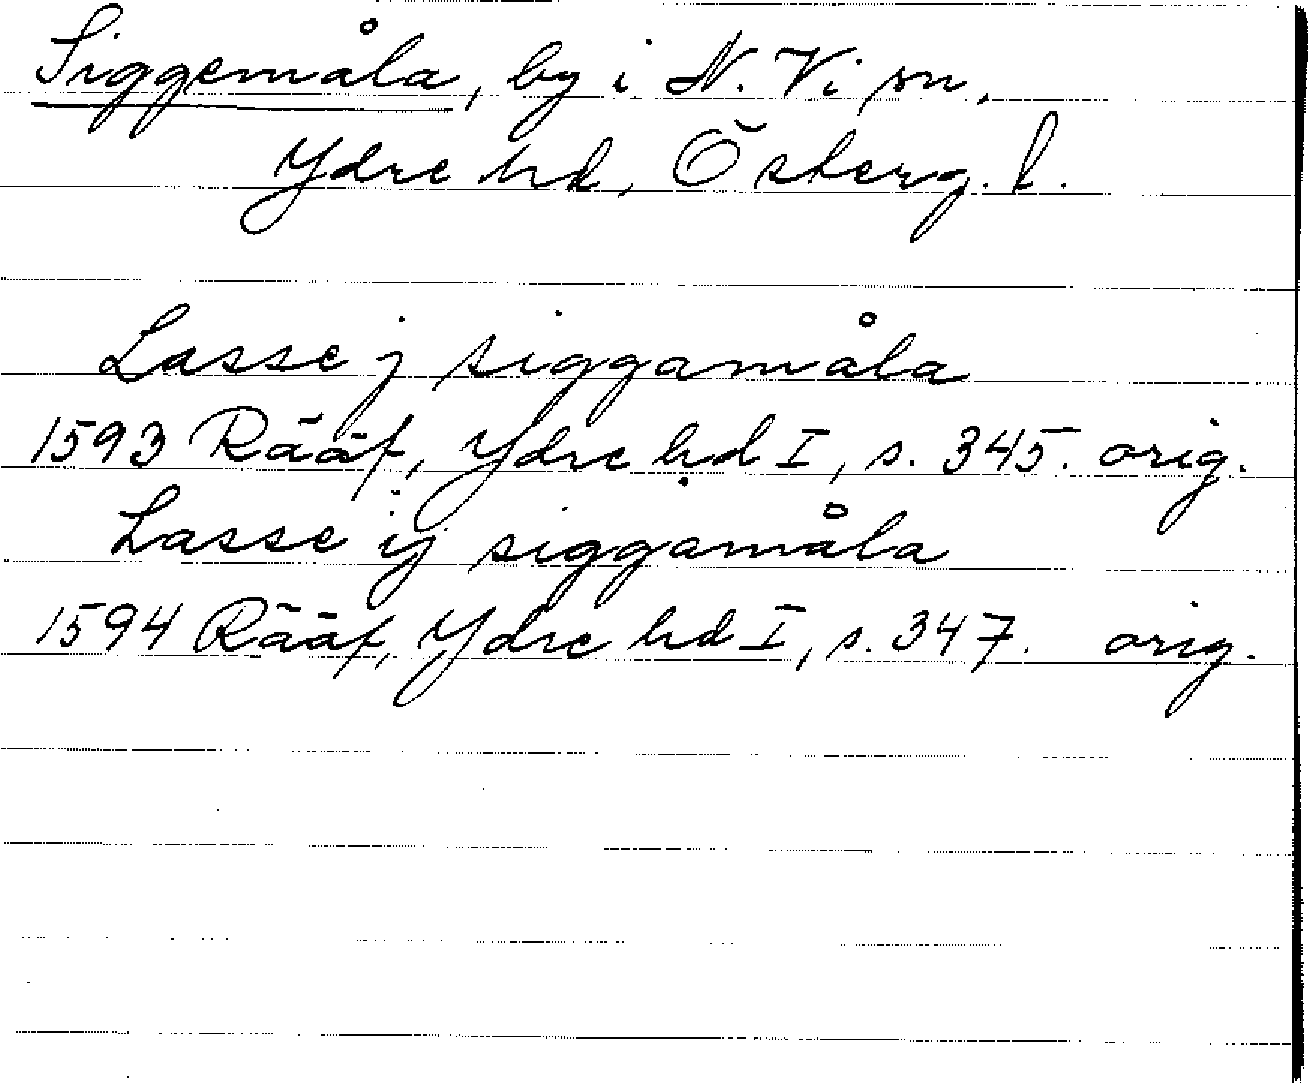 Siggemåla, by i N. Vi sn,
Ydre hd, Österg. l.
Lasse j siggamåla
1593 Rääf, Ydre hd I, s. 345. orig.
Lasse ij siggamåla
1594 Rääf, Ydre hd I, s. 347. orig.